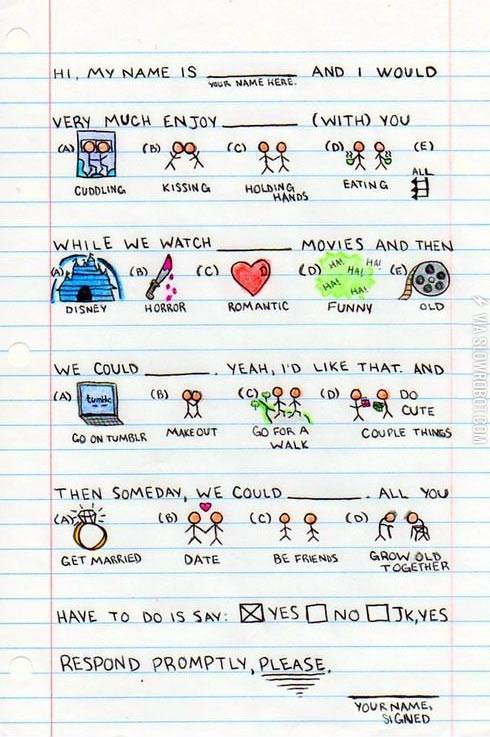 HI, MY NAME IS __________ AND I WOULD
YOUR NAME HERE.
VERY MUCH ENJOY ________ (WITH) YOU
(A) (B) (C) (D) (E)
CUDDLING KISSING HOLDING HANDS EATING ALL
WHILE WE WATCH ________ MOVIES AND THEN
(A) (B) (C) (D) (E)
HA! HA! HA! HA! HA!
DISNEY HORROR ROMANTIC FUNNY OLD
WE COULD _______. YEAH, I'D LIKE THAT. AND
(A) (B) (C) (D) DO
tumblr CUTE
GO ON TUMBLR MAKEOUT GO FOR A WALK COUPLE THINGS
THEN SOMEDAY, WE COULD ________. ALL YOU
(A) (B) (C) (D)
GET MARRIED DATE BE FRIENDS GROW OLD TOGETHER
HAVE TO DO IS SAY: ☒ YES ☐ NO ☐ JK, YES
RESPOND PROMPTLY, PLEASE.
YOUR NAME, SIGNED
VIA SLOWROBOT.COM